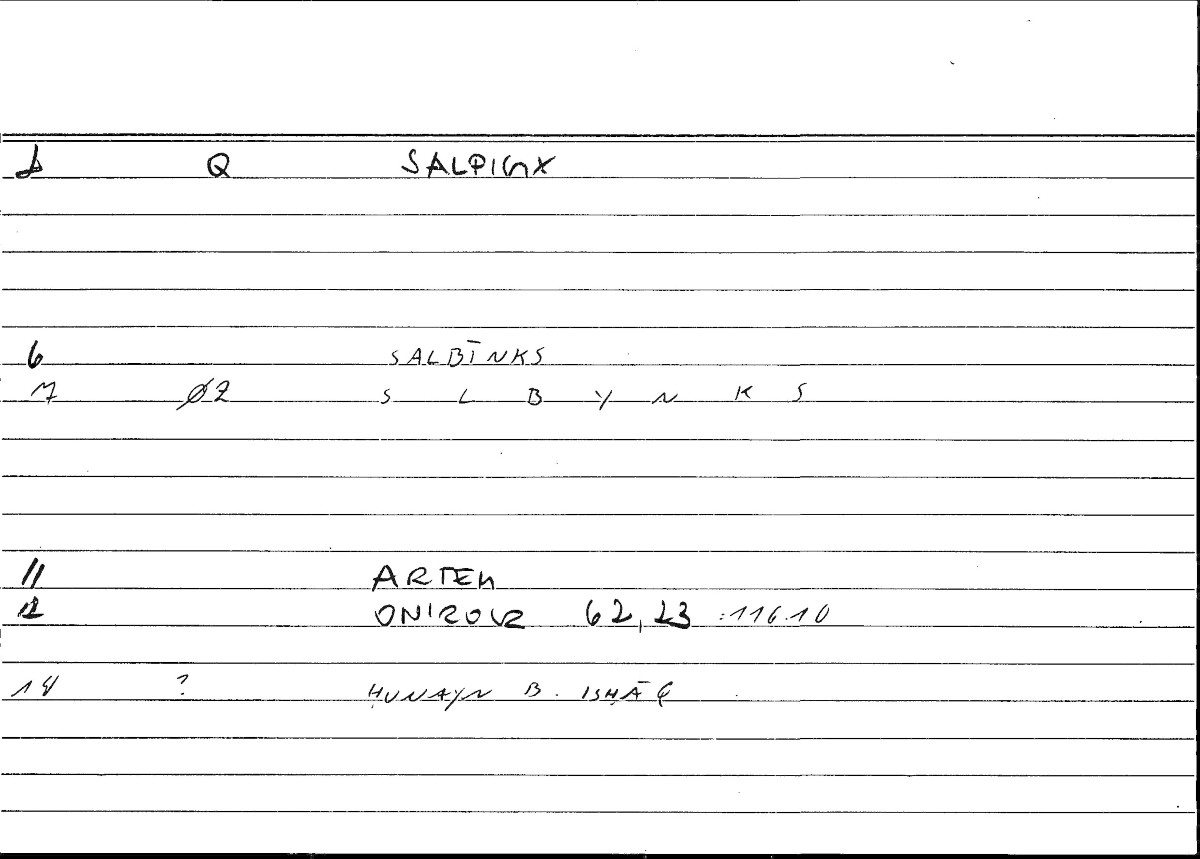 1 Q SALPIGX
6 SALBĪNKS
7 02 S L B Y N K S
11 ARTEM
12 ONIROCR 62,23 :116.10
14 ? ḤUNAYN B. ISḤĀQ